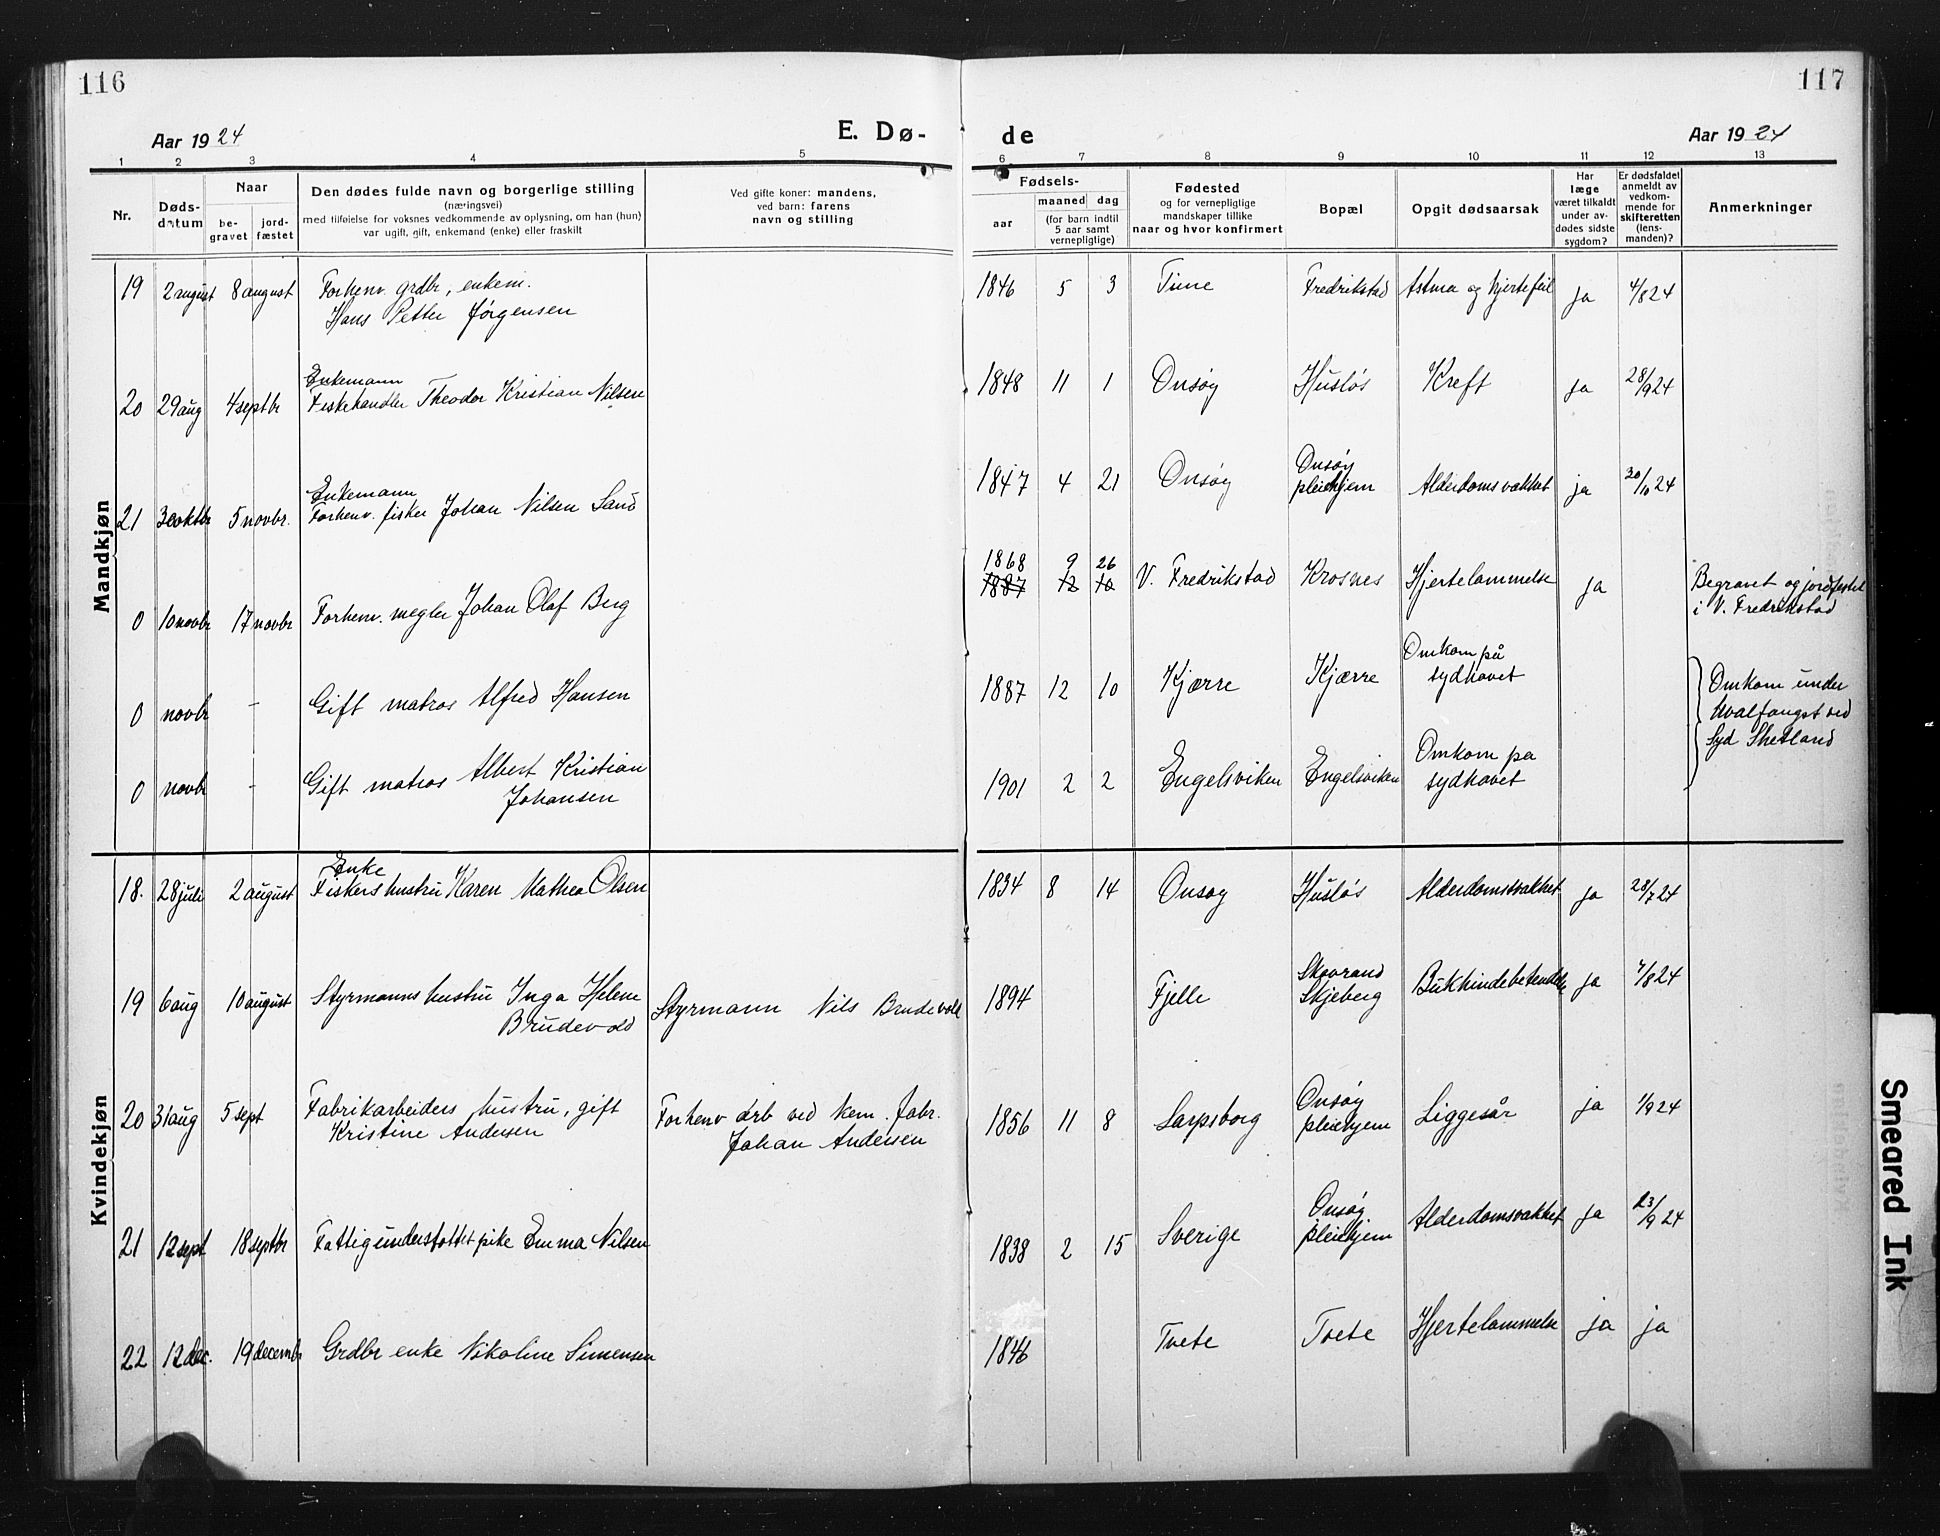 116
117
Aar 1924
E. Dø-
de
Aar 1924
1 2 3 4 5 6 7 8 9 10 11 12 13
Nr.
Døds-
datum
Naar
be-
gravet
jord-
fæstet
Den dødes fulde navn og borgerlige stilling
(næringsvei)
med tilføielse for voksnes vedkommende av oplysning, om han (hun)
var ugift, gift, enkemand (enke) eller fraskilt
Ved gifte koner: mandens,
ved barn: farens
navn og stilling
Fødsels-
aar
maaned
dag
(for barn indtil
5 aar samt
vernepligtige)
Fødested
og for vernepligtige
mandskaper tillike
naar og hvor konfirmert
Bopæl
Opgit dødsaarsak
Har
læge
været tilkaldt
under av-
dødes sidste
sygdom?
Er dødsfaldet
anmeldt av
vedkom-
mende for
skifteretten
(lens-
manden)?
Anmerkninger
Mandkjøn
19 2 august 8 august Forhenv. grdbr, enkem.
Hans Petter Jørgensen
1846 5 3 Tune Fredrikstad Astma og hjertefeil ja 4/8 24
Enkemann
20 29 aug 4 septbr Fiskehandler Theodor Kristian Nilsen
1848 11 1 Onsøy Husløs Kreft ja 28/9 24
Enkemann
21 30 oktbr 5 novbr. Forhenv. fisker Johan Nilsen Sand
1847 4 21 Onsøy Onsøy
pleiehjem Alderdomsvakhet ja 30/10 24
0 10 novbr 17 novbr Forhenv. megler Johan Olaf Berg
1868 9 26
1887 12 10 V. Fredrikstad Krosnes Hjertelammelse ja Begravet og jordfestet
i V. Fredrikstad
0 novbr - Gift matros Alfred Hansen
1887 12 10 Kjærre Kjærre Omkom på
sydhavet
Omkom under
hvalfangst ved
Syd Shetland
0 novbr - Gift matros Albert Kristian
Johansen
1901 2 2 Engelsviken Engelsviken Omkom på
sydhavet
Kvindekjøn
Enke
18. 28 juli 2 august Fiskers hustru Karen Mathea Olsen
1834 8 14 Onsøy Husløs Alderdomsvakhet ja 28/7 24
19 6 aug 10 august Styrmanns hustru Inga Helene
Brudevold
Styrmann Nils Brudevold
1894 Fjelle Skovrand
Skjeberg Bukhindebetendelse ja 7/8 24
20 31 aug 5 sept Fabrikarbeiders hustru, gift
Kristine Andersen
Forhenv arb ved kem. fabr.
Johan Andersen
1856 11 8 Sarpsborg Onsøy
pleiehjem Liggesår ja 1/9 24
21 12 sept 18 septbr Fattigunderstøttet pike Emma Nilsen
1838 2 15 Sverige Onsøy
pleiehjem Alderdomsvakhet ja 23/9 24
22 12 dec. 19 decembr Grdbr enke Nikoline Simensen
1846 Tvete Tvete Hjertelammelse ja ja
Smeared Ink